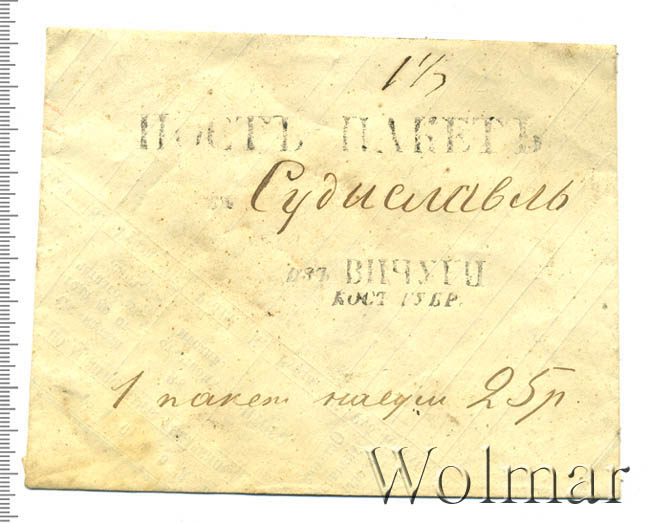 1 1/3
ПОСТЪ ПАКЕТЪ
въ Судиславль
изъ ВИЧУГИ
КОСТ ГУБР.
1 пакет на сум 25 р.
Wolmar